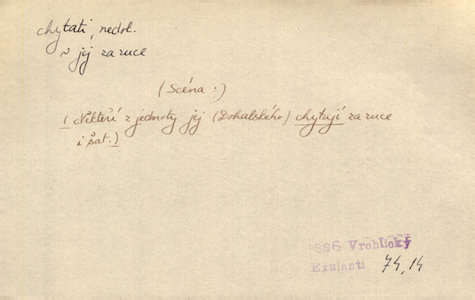 chytati, nedok.
~ jej za ruce
(Scéna:)
(Někteří z jednoty jej (Dohalského) chytají za ruce
i šat.)
1886 Vrchlický
Exulanti 74,14